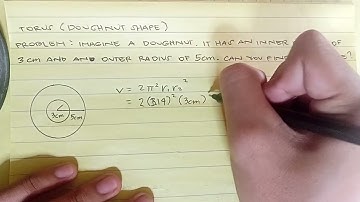 TORUS (DOUGHNUT SHAPE)
PROBLEM: IMAGINE A DOUGHNUT. IT HAS AN INNER OF
3CM AND AND OUTER RADIUS OF 5CM. CAN YOU FIND
V = 2π² r₁ r₂²
= 2 (3.14)² (3cm)
3cm 5cm